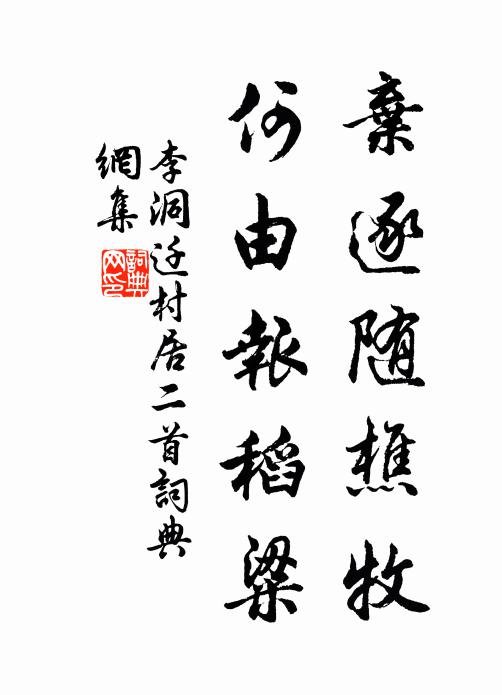 棄逐随樵牧
何由報稻粱
李洞迁村居二首詞典
網集
詞典
网印